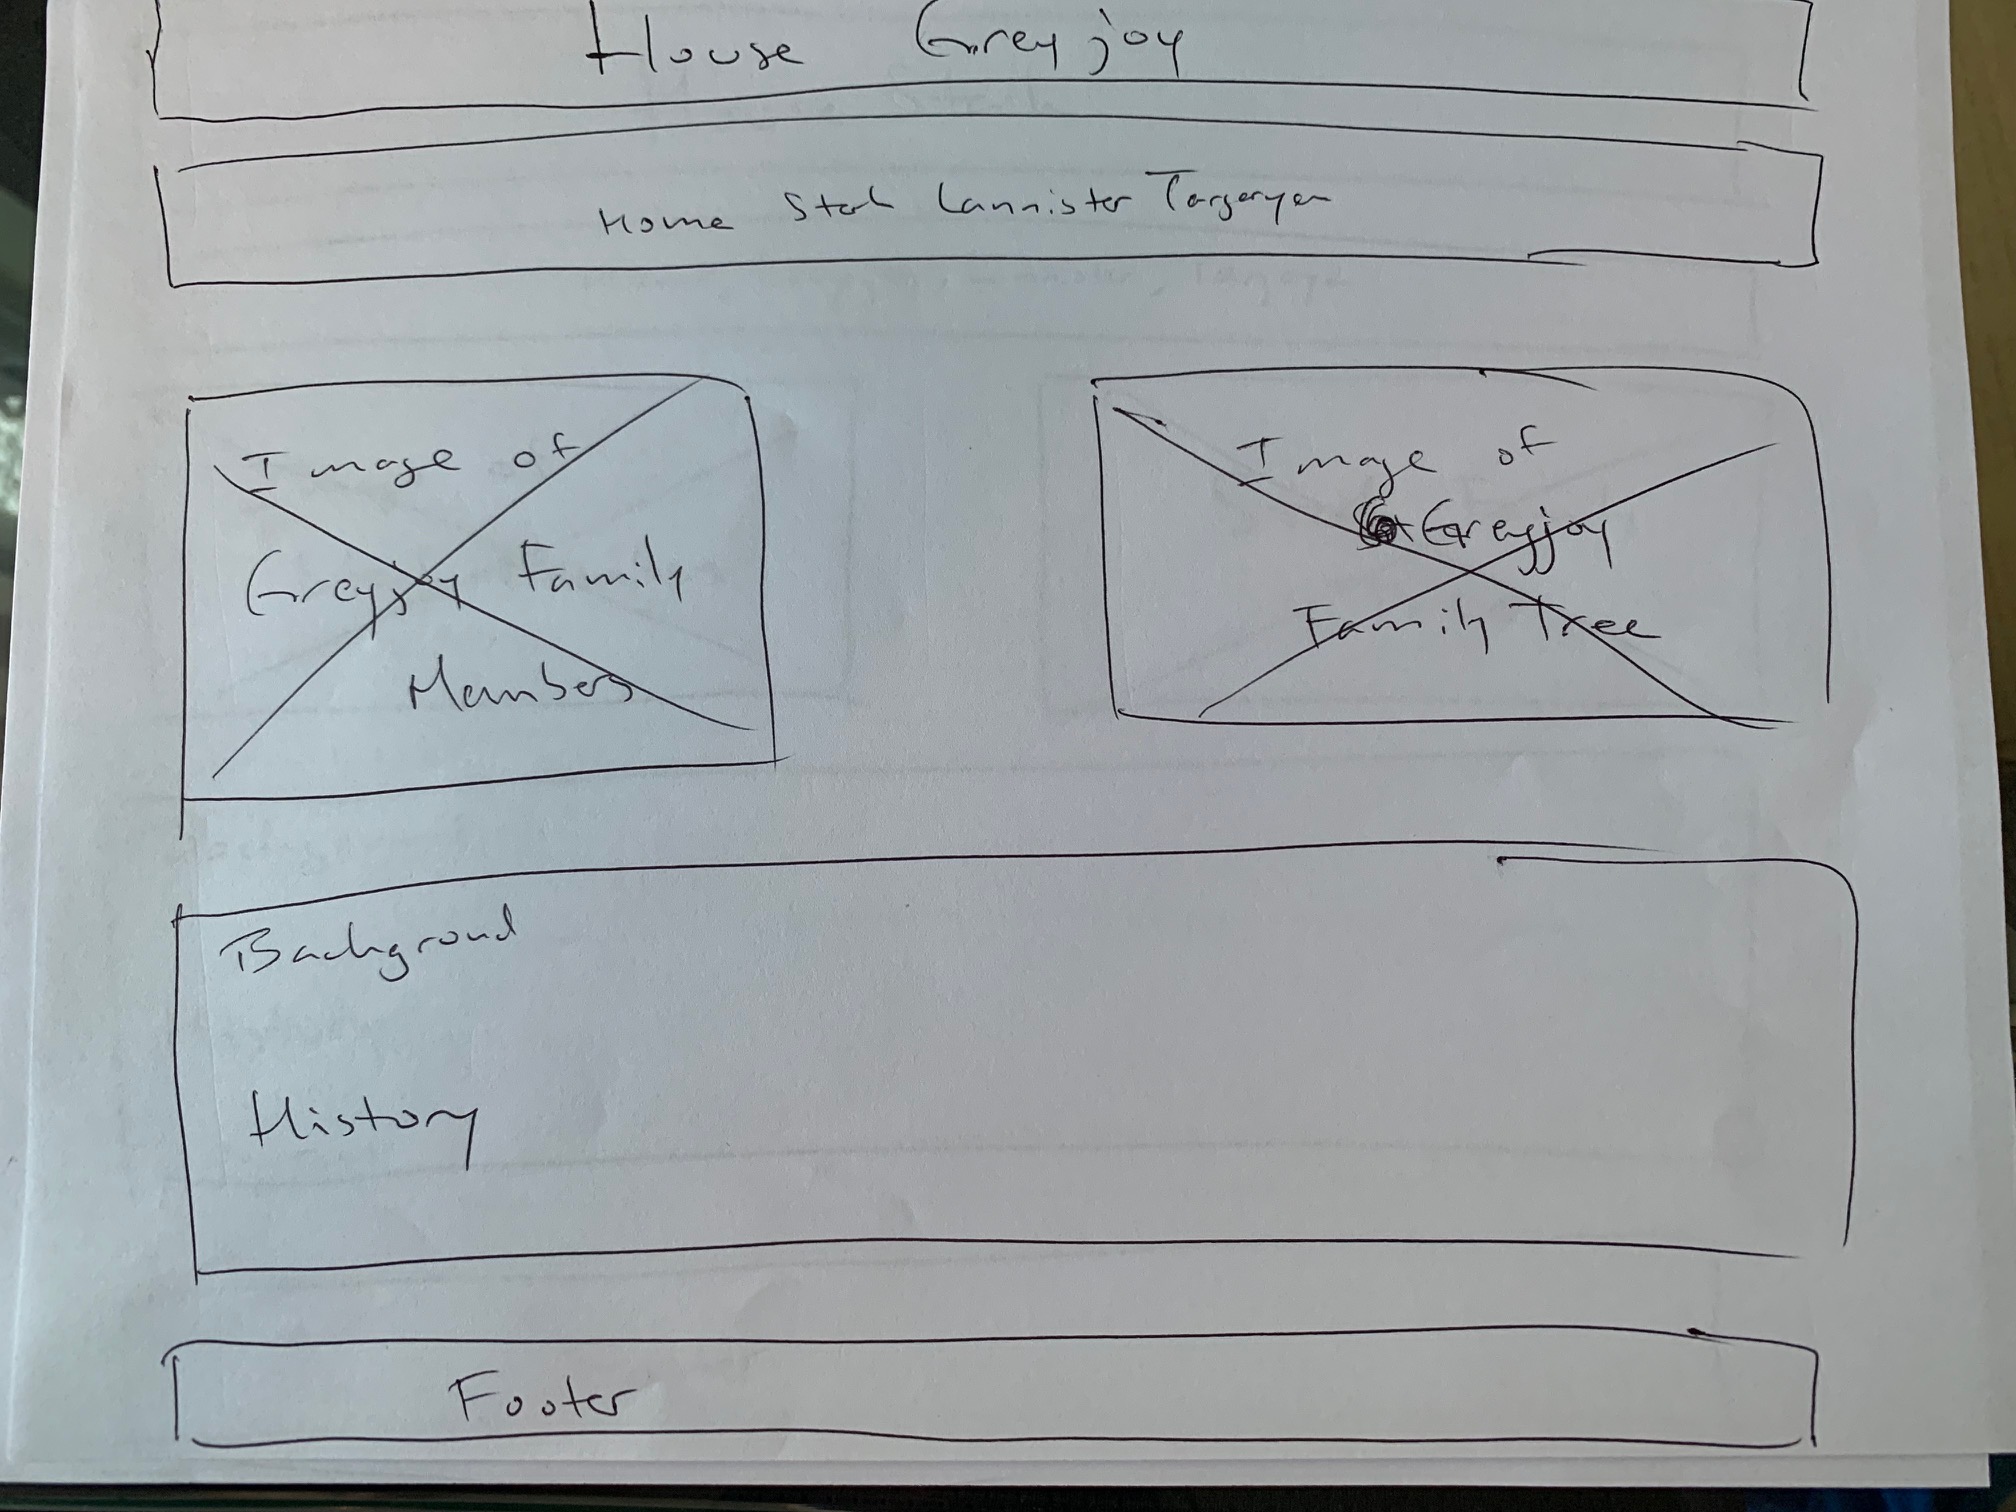 House Greyjoy
Home Stark Lannister Targaryen
Image of
Greyjoy Family
Members
Image of
Greyjoy
Family Tree
Background
History
Footer